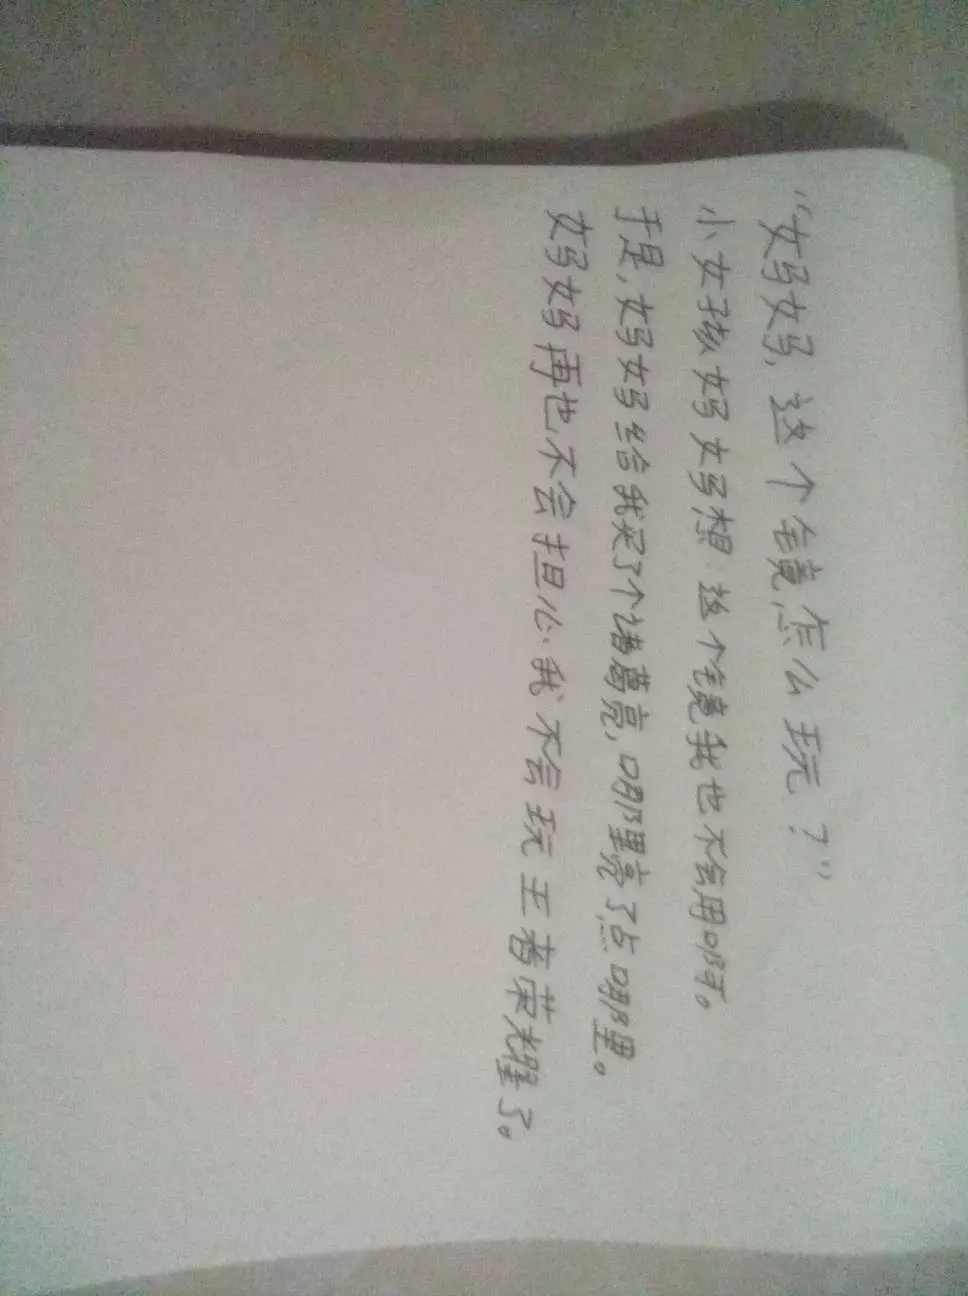 “妈妈，这个镜怎么玩？”
小女孩妈妈想：这个镜我也不会用呀。
于是，妈妈给我买了个诸葛亮，哪里亮了点哪里。
妈妈再也不会担心我不会玩王者荣耀了。